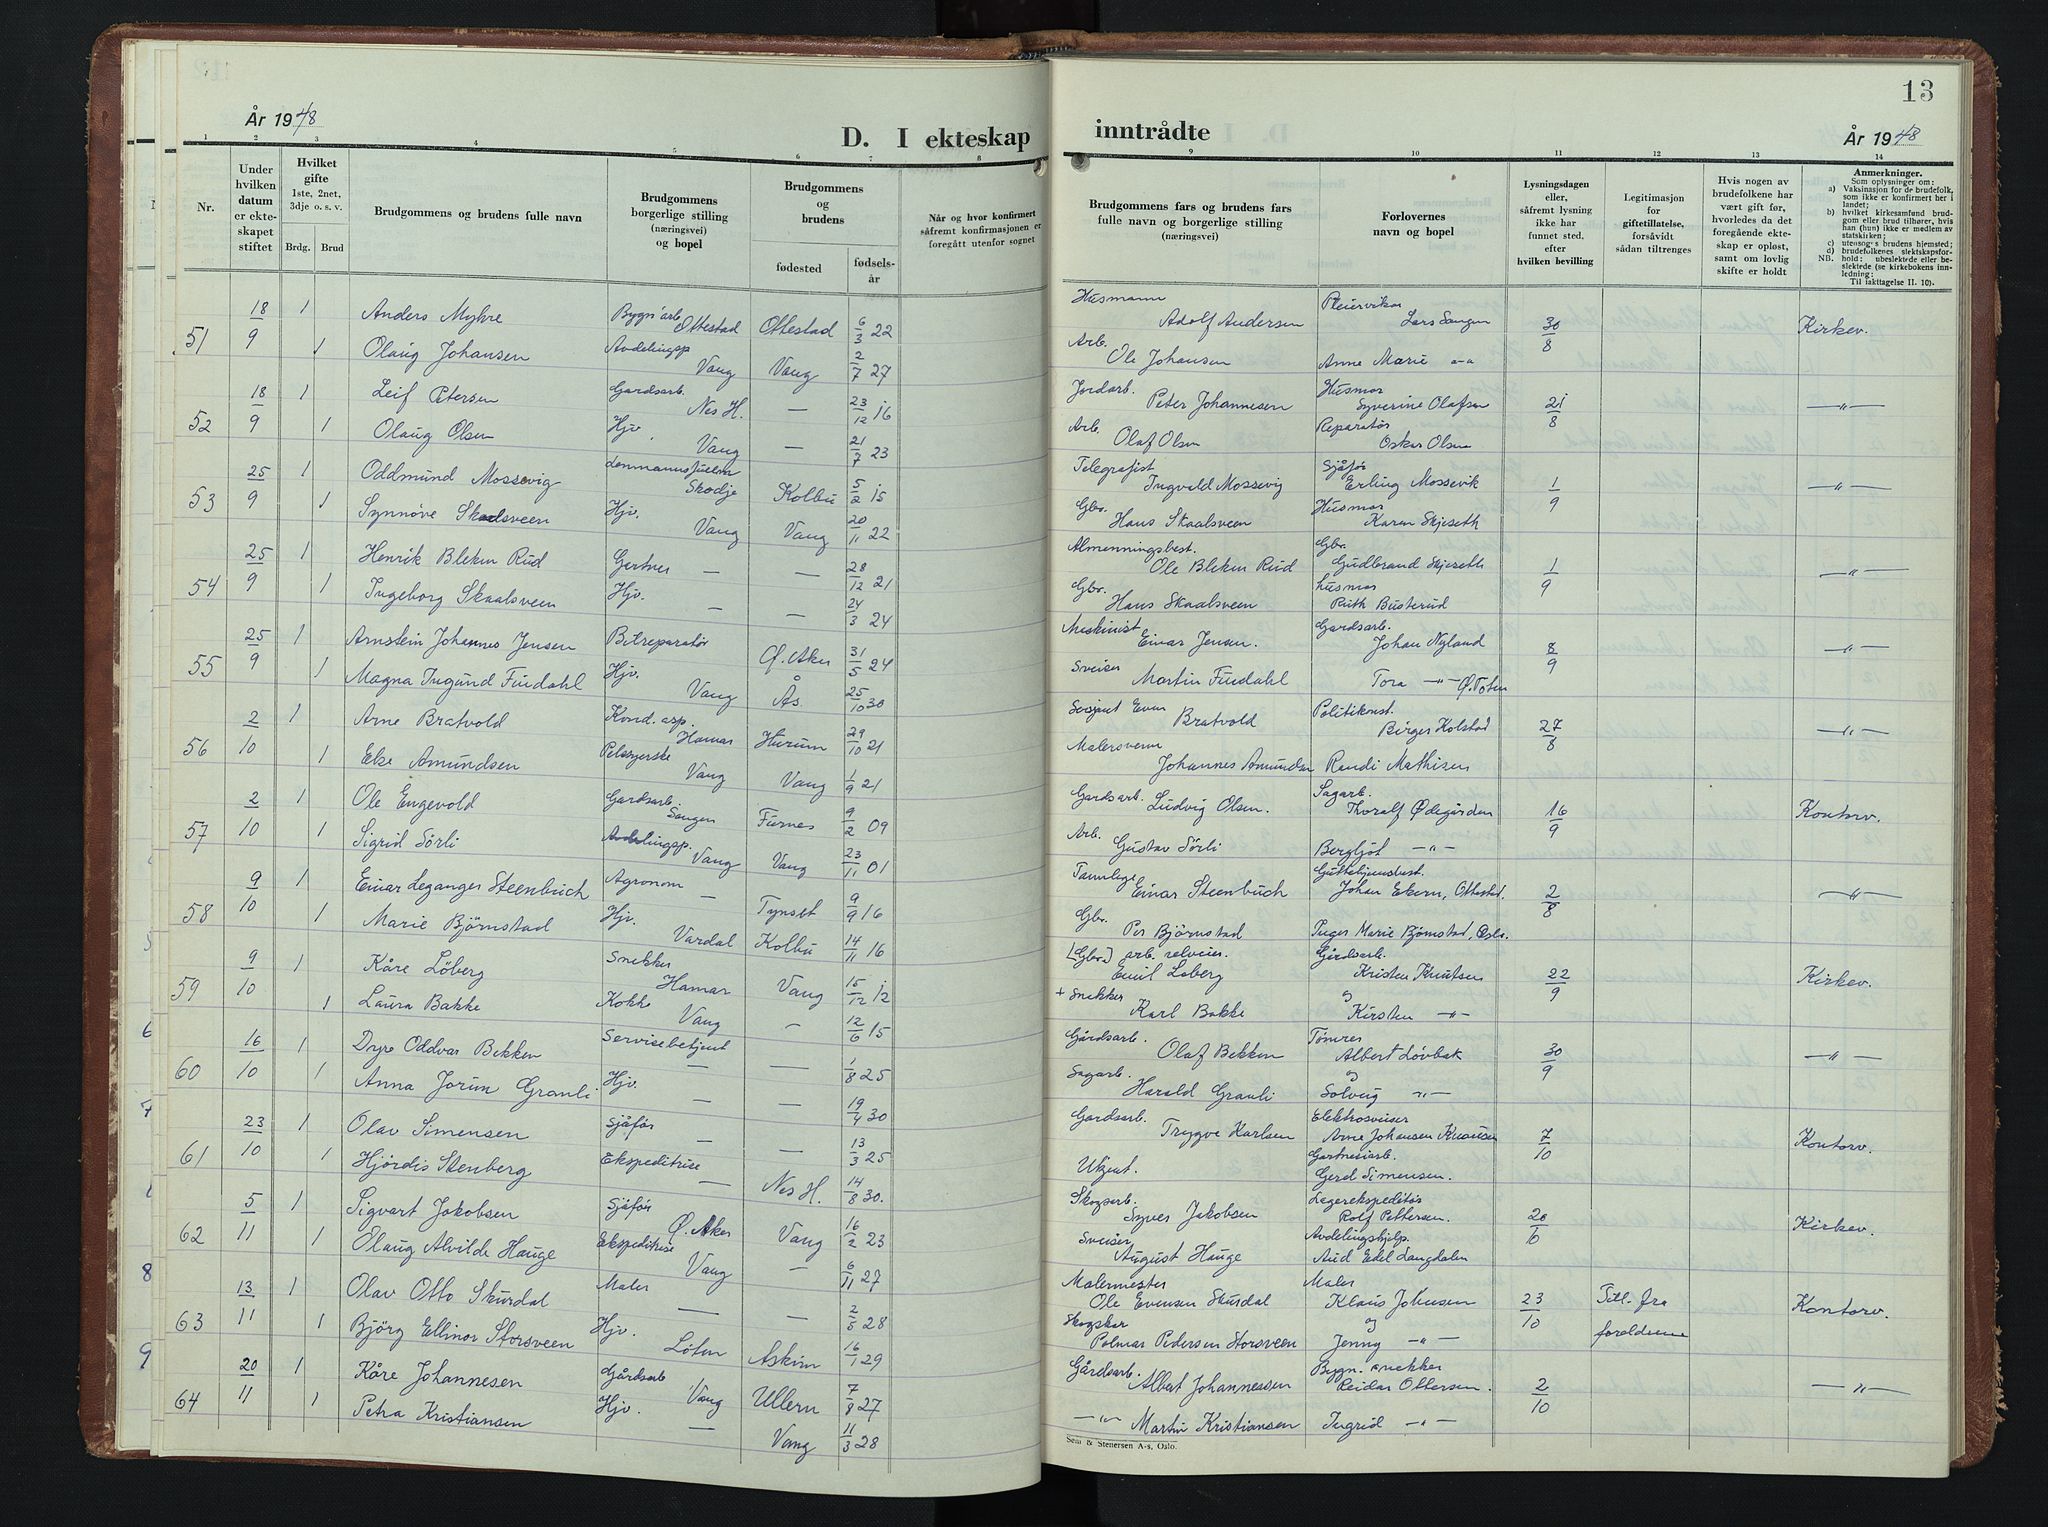 År 1948
D. I ekteskap
1 2 3 4 5 6 7 8
Nr.
Under hvilken datum er ekteskapet stiftet
Hvilket gifte 1ste, 2net, 3dje o. s. v.
Brdg. Brud
Brudgommens og brudens fulle navn
Brudgommens borgerlige stilling (næringsvei) og bopel
Brudgommens og brudens
fødested
fødselsår
Når og hvor konfirmert såfremt konfirmasjonen er foregått utenfor sognet
51 18/9 1 Anders Myhre Bygn.arb. Ottestad Ottestad 6/3 22
1 Olaug Johansen Avdelingsp Vang Vang 2/7 27
52 18/9 1 Leif Petersen Gardsarb. Nes H. — 23/12 16
1 Olaug Olsen Hjv. Vang — 21/7 23
53 25/9 1 Oddmund Mossevig Lensmannsfullm Skodje Kolbu 5/2 15
1 Synnøve Skaalsveen Hjv. Vang Vang 20/11 22
54 25/9 1 Henrik Bleken Rud Gartner — — 28/12 21
1 Ingeborg Skaalsveen Hjv. — — 24/3 24
55 25/9 1 Arnstein Johannes Jensen Bilreparatør Ø. Aker 31/5 24
1 Magna Ingund Findahl Hjv. Vang Ås 25/10 30
56 2/10 1 Arne Bratvold Kond. asp. Hamar Hurum 29/10 21
1 Else Amundsen Pelssyerske Vang Vang 1/9 21
57 2/10 1 Ole Engevold Gardsarb. Sangen Furnes 9/2 09
1 Sigrid Sörli Avdelingsp. Vang Vang 23/11 01
58 9/10 1 Einar Leganger Steenbuch Agronom — Tynset 9/9 16
1 Marie Björnstad Hjv. Vardal Kolbu 14/11 16
59 9/10 1 Kåre Löberg Snekker Hamar Vang 15/12 12
1 Laura Bakke Kokke Vang — 12/6 15
60 16/10 1 Dyre Oddvar Bekken Servisebetjent — — 1/8 25
1 Anna Jorun Granli Hjv. — — 19/4 30
61 23/10 1 Olav Simensen Sjåfør — — 13/3 25
1 Hjördis Stenberg Ekspeditrise — Nes H. 14/8 30.
62 5/11 1 Sigvart Jakobsen Sjåfør Ø. Aker Vang 16/2 23
1 Olaug Alvilde Hauge Ekspeditrise Vang — 6/11 27
63 13/11 1 Olav Otto Skurdal Maler — — 2/5 28
1 Björg Ellinor Storsveen Hjv. Løten Askim 16/1 29
64 20/11 1 Kåre Johannesen Gårdsarb. Vang Ullern 7/8 27
1 Petra Kristiansen Hjv. — Vang 11/3 28
13
inntrådte
År 1948
9 10 11 12 13 14
Brudgommens fars og brudens fars fulle navn og borgerlige stilling (næringsvei)
Forlovernes navn og bopel
Lysningsdagen eller, såfremt lysning ikke har funnet sted, efter hvilken bevilling
Legitimasjon for giftetillatelse, forsåvidt sådan tiltrenges
Hvis nogen av brudefolkene har vært gift før, hvorledes da det foregående ekteskap er opløst, samt om lovlig skifte er holdt
Anmerkninger.
Som oplysninger om:
a) Vaksinasjon for de brudefolk, som ikke er konfirmert her i landet;
b) hvilket kirkesamfund brudgom eller brud tilhører, hvis han (hun) ikke er medlem av statskirken;
c) utensogns brudens hjemsted;
d) brudefolkenes slektskapsforhold: ubeslektede eller beslektede (se kirkebokens innledning;
NB. Til iakttagelse II. 10).
Husmann Adolf Andersen Lars Sangen 30/8 Kirkev.
Arb. Ole Johansen Anne Marie
Jordarb. Peter Johannesen Husmor Syverine Olafsen 21/8 —"—
Arb. Olaf Olsen Reparatør Oskar Olsen
Telegrafist Ingvald Mossevig Sjåfør Erling Mossevik 1/9 —"—
Gbr. Hans Skaalsveen Husmor Karen Skjeseth
Almenningsbest. Ole Bleken Rud Gbr. Gudbrand Skjeseth 1/9 —"—
Gbr. Hans Skaalsveen husmor Ruth Busterud
Maskinist Einar Jensen. Gardsarb. Johan Nyland 8/9 —"—
Sveiser Martin Findahl Tora —"— Ø. Toten
Sersjant Even Bratvold Politikonst. Birger Kolstad 27/8 —"—
Malersvenn Johannes Amundsen Randi Mathisen
Gardsarb. Ludvig Olsen. Sagarb. Thoralf Ødegården 16/9 Kontorv.
Arb. Gustav Sörli Bergljot —"—
Tannlege Einar Steenbuch Johan Ekern, Ottestad. 2/8 —"—
Gbr. Per Björnstad Inger Marie Bjørnstad, Oslo.
[Gbr.] arb. Emil Löberg Gårdsarb. Kristen Knutsen 22/9 Kirkev.
+ Snekker Karl Bakke og Kirsten —"—
Gårdsarb. Olaf Bekken Tømrer Albert Lövbak 30/9 —"—
Sagarb. Harald Granli og Solveig —"—
Gardsarb. Trygve Karlsen Elektrosveiser Arne Johansen Knausen 7/10 Kontorv.
Ukjent. Gartneriarb. Gerd Simensen.
Skogsarb. Syver Jakobsen Lagerekspeditør Rolf Pettersen. 20/10 Kirkev.
Sveiser August Hauge Avdelingshjelp. Aud Edel Langdalen
Malermester Ole Evensen Skurdal Maler Klaus Johnsen 23/10 Till. fra foreldrene Kontorv.
Skogskar Polmar Pedersen Storsveen og Jenny —"—
Gårdsarb. Albert Johannessen Bygn. snekker Reidar Ottersen. 2/10 —"—
—"— Martin Kristiansen Ingrid —"—
Sem & Stenersen A-s, Oslo.